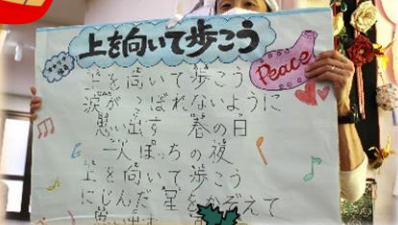 上を向いて歩こう
Peace
上を向いて歩こう
涙がこぼれないように
思い出す 春の日
一人ぽっちの夜
上を向いて歩こう
にじんだ星をかぞえて
思い出す